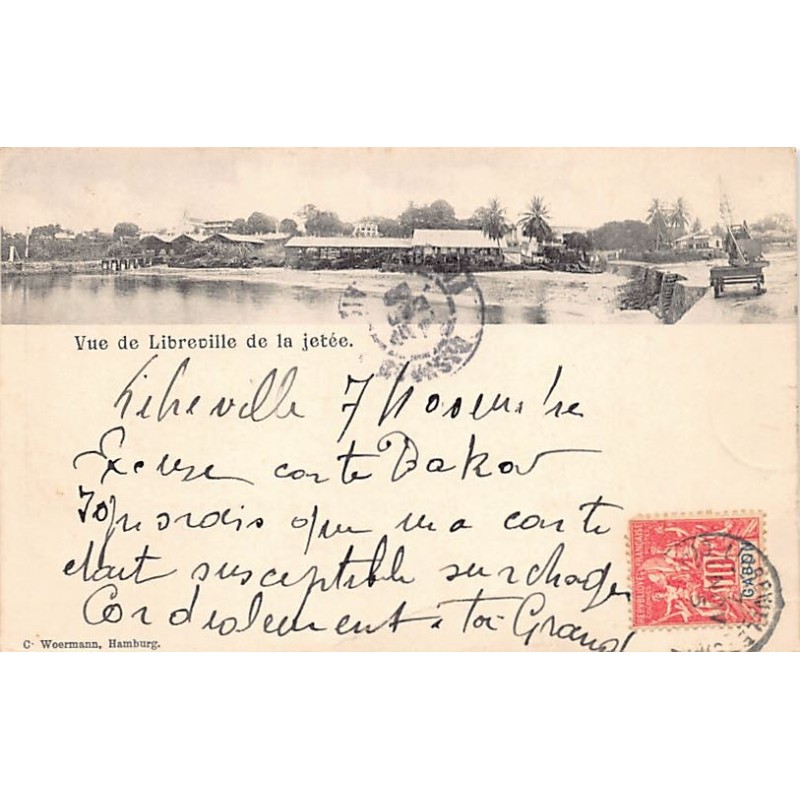 Vue de Libreville de la jetée.
Libreville 7 Novembre
Excuse carte Dakar
J'ignorais que ma carte
etait susceptible surcharger
Cordialement à toi Grand
C. Woermann, Hamburg.
10
GABON